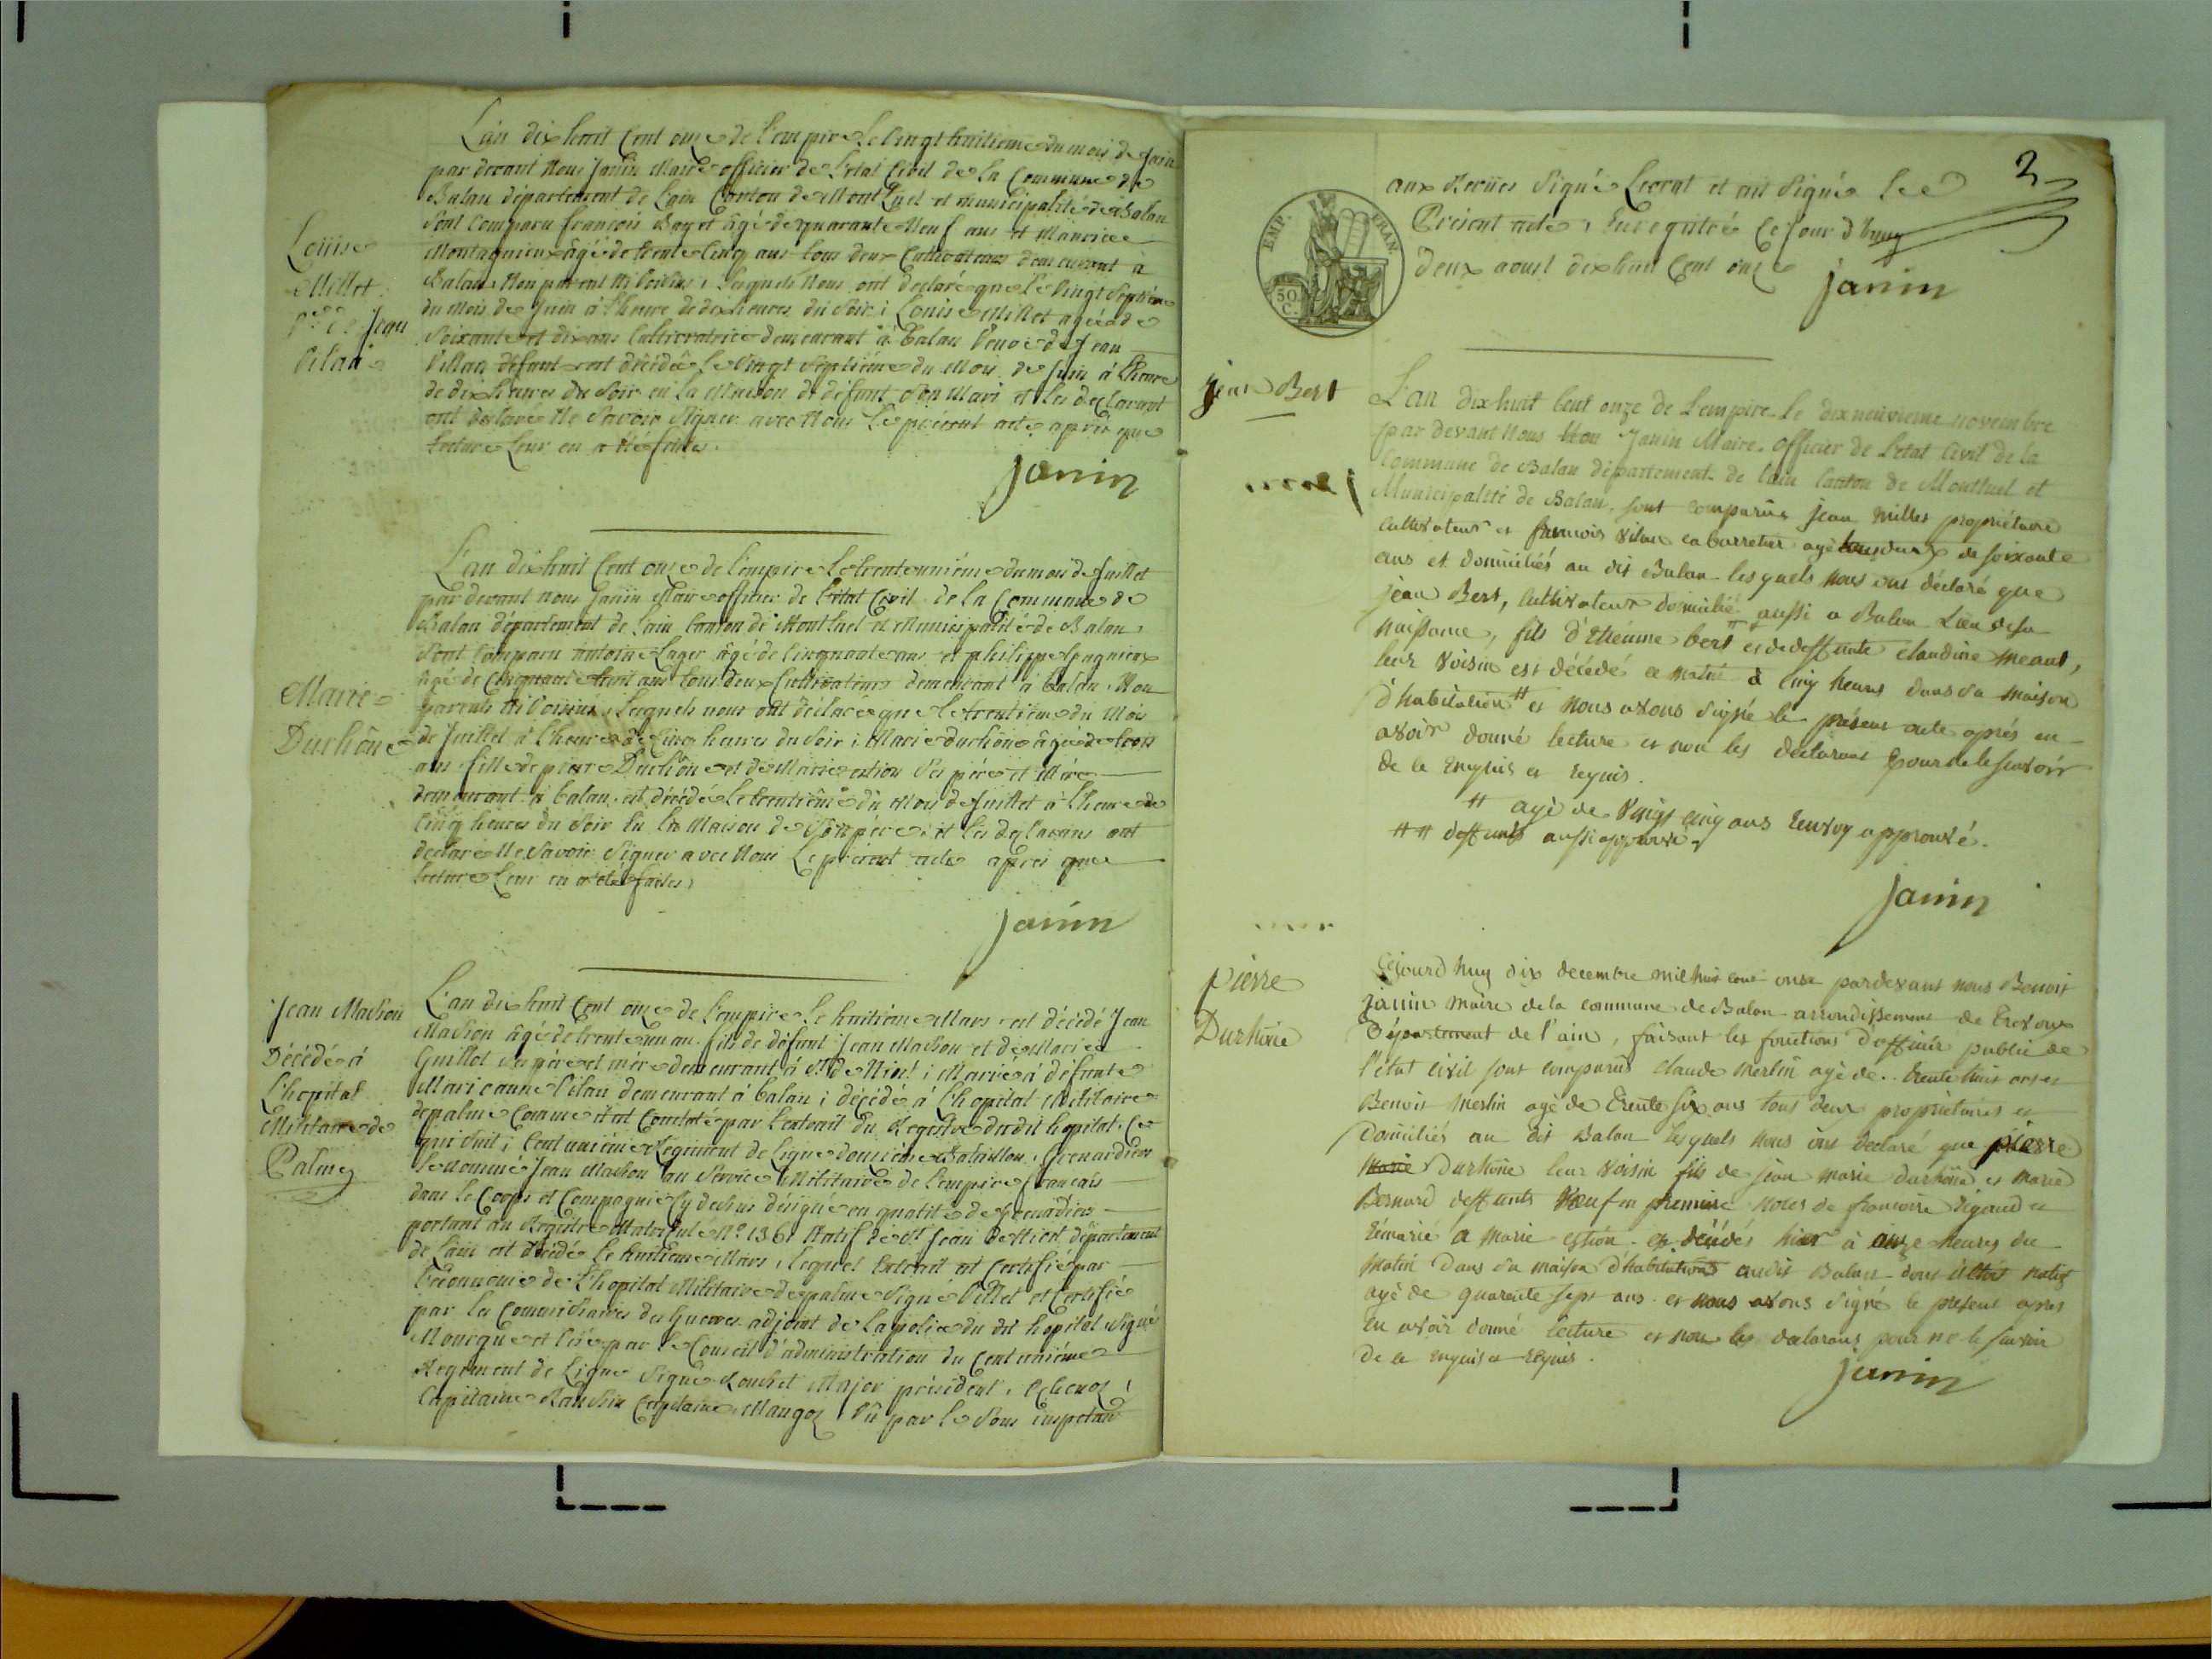 Louise
Millet
Vve de Jean
Vilan
L'an dix huit Cent onze de l'empire Le Vingt huitième du mois de Juin
par devant Nous Janin Maire officier de L'etat Civil de La Commune de
Balan département de L'ain Canton de MontLuel et municipalité de Balan
Sont Comparu françois Bayet âgé de quarante Neuf ans et Maurice
Montagnieux âgé de trente Cinq ans tous deux Cultivateurs demeurant à
Balan Non parent Ni Voisins, Lesquels Nous ont déclaré que Le Vingt Septième
du Mois de Juin à L'heure de dix heures du Soir; Louise Millet agée de
Soixante et dix ans Cultivatrice demeurant à balan Veuve de Jean
Villan défunt est décédée Le Vingt Septième du Mois de Juin à L'heure
de dix heures du Soir en La Maison de défunt Son Mari et Les déclarant
ont déclaré Ne Savoir Signer avec Nous Le présent acte après que
Lecture Leur en a été faite.
Janin
Marie
Duchêne
L'an dix huit Cent onze de L'empire Le trente unième du mois de Juillet
par devant nous Janin Maire officier de L'état Civil de la Commune de
Balan département de L'ain Canton de MontLuel et Municipalité de Balan
Sont Comparu antoine Lager âgé de Cinquante ans et philippe
âgé de Cinquante huit ans tous deux Cultivateurs demeurant à balan, Non
parents Ni Voisins, Lesquels nous ont déclaré que Le trentième du Mois
de Juillet à L'heure de Cinq heures du Soir; Marie duchêne âgée de trois
ans fille de pierre Duchêne et de Marie estion Ses père et Mère
demeurant à balan, est décédée Le trentième du Mois de Juillet à L'heure de
Cinq heures du Soir En La Maison de Son père; et Les déclarans ont
déclaré Ne Savoir Signer avec Nous Le présent acte après que
Lecture Leur en a été faite,
Janin
Jean Machon
Décédé à
L'hopital
Militaire de
Palmy
L'an dix huit Cent onze de L'empire Le huitième Mars, est décédé Jean
Machon âgé de trente un an, fils de défunt Jean Machon et de Marie
Guillot ses père et mère demeurant à St de Niost; Marié à défunte
Marie anne Vilan demeurant à balan; décédé à L'hopital Militaire
de palme Comme il est Constaté par L'extrait du Registre du dit hopital, Ce
qui Suit; Cent unième Regiment de Ligne douxième Bataillon, Grenardiers
Le nommé Jean Machon au Service Militaire de L'empire français
dans Le Corps et Compagnie Cy dessus désigné en qualité de Grenadiers
portant au Registre Matricule No. 136, Natif de St Jean de Niost département
de L'ain est décédé Le huitième Mars, lequel Extrait est Certifié par
L'économe de L'hopital Militaire de palme Signé Villet et Certifié
par Le Commissaires des Guerres adjoint de La police du dit hopital, Signé
Mourgue et Visé par Le Conseil d'administration du Cent unième
Regiment de Ligne Signé Major président,
Capitaine Capitaine, Mangol, Vû par Le Sous inspecteur
2
EMP. FRAN.
50 C.
aux Revües Signé Lecrat et ont Signé Le
Présent acte, Enregistré Ce Jour d'huy
deux aoust dix huit Cent onze
Janin
Jean Bert
L'an dix huit Cent onze de L'empire Le dix neuvieme novembre
par devant Nous Janin Maire, officier de L'etat Civil de la
Commune de Balan département de l'ain Canton de Montluel et
Municipalité de Balan, sont comparûs jean millet propriétaire
cultivateur et francois vilan cabarretier agé tous deux de soixante
ans et domiciliés au dit Balan lesquels nous ont déclaré que
jean Bert, cultivateur domicilié aussi a Balan Lieu de sa
naissance, fils d'Etiénne bert # et de deffunte claudine meant,
leur voisin est décédé ce matin à cinq heures dans sa maison
d'habitation # et nous avons signé le présent acte aprés en
avoir donné lecture et non les déclarants pour ne le savoir
de ce enquis et requis.
# agé de vingt cinq ans renvoy approuvé.
# # deffunts aussi approuvé
Janin
pierre
Durhône
Cejourd'huy dix decembre mil huit cent onze pardevant nous Benoit
janin maire de la commune de Balan arrondissement de trevoux
Département de l'ain, faisant les fonctions d'officier public de
l'état civil sont comparus claude merlin agé de trente huit ans et
Benoit merlin agé de trente six ans tous deux propriétaires et
domiciliés au dit Balan lesquels nous ont declaré que pierre
marie Durhône leur voisin fils de jean marie durhône et marie
Bernard deffunts veuf en premiere noces de francoise Rigaud et
rémarié a Marie estion est décédés hier à onze heures du
matin Dans sa maison d'habitation audit Balan dont il étoit natif
agé de quarente sept ans et nous avons signé le present apres
en avoir donné lecture et non les declarans pour ne le savoir
de ce enquis et requis.
Janin